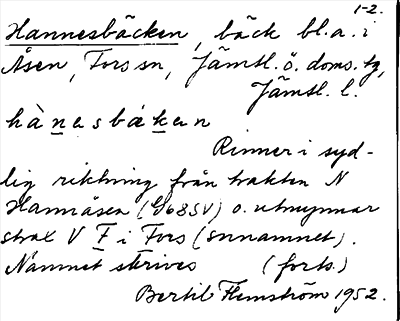 1-2.
Hannesbäcken, bäck bl.a. i
Åsen, Fors sn, Jämtl. ö. doms. tg,
Jämtl. l.
hànesbäken
Rinner i syd-
lig riktning från trakten N
Hannåsen (G68SV) o. utmynnar
strax V F i Fors (snnamnet).
Namnet skrives (forts.)
Bertil Flemström 1952.